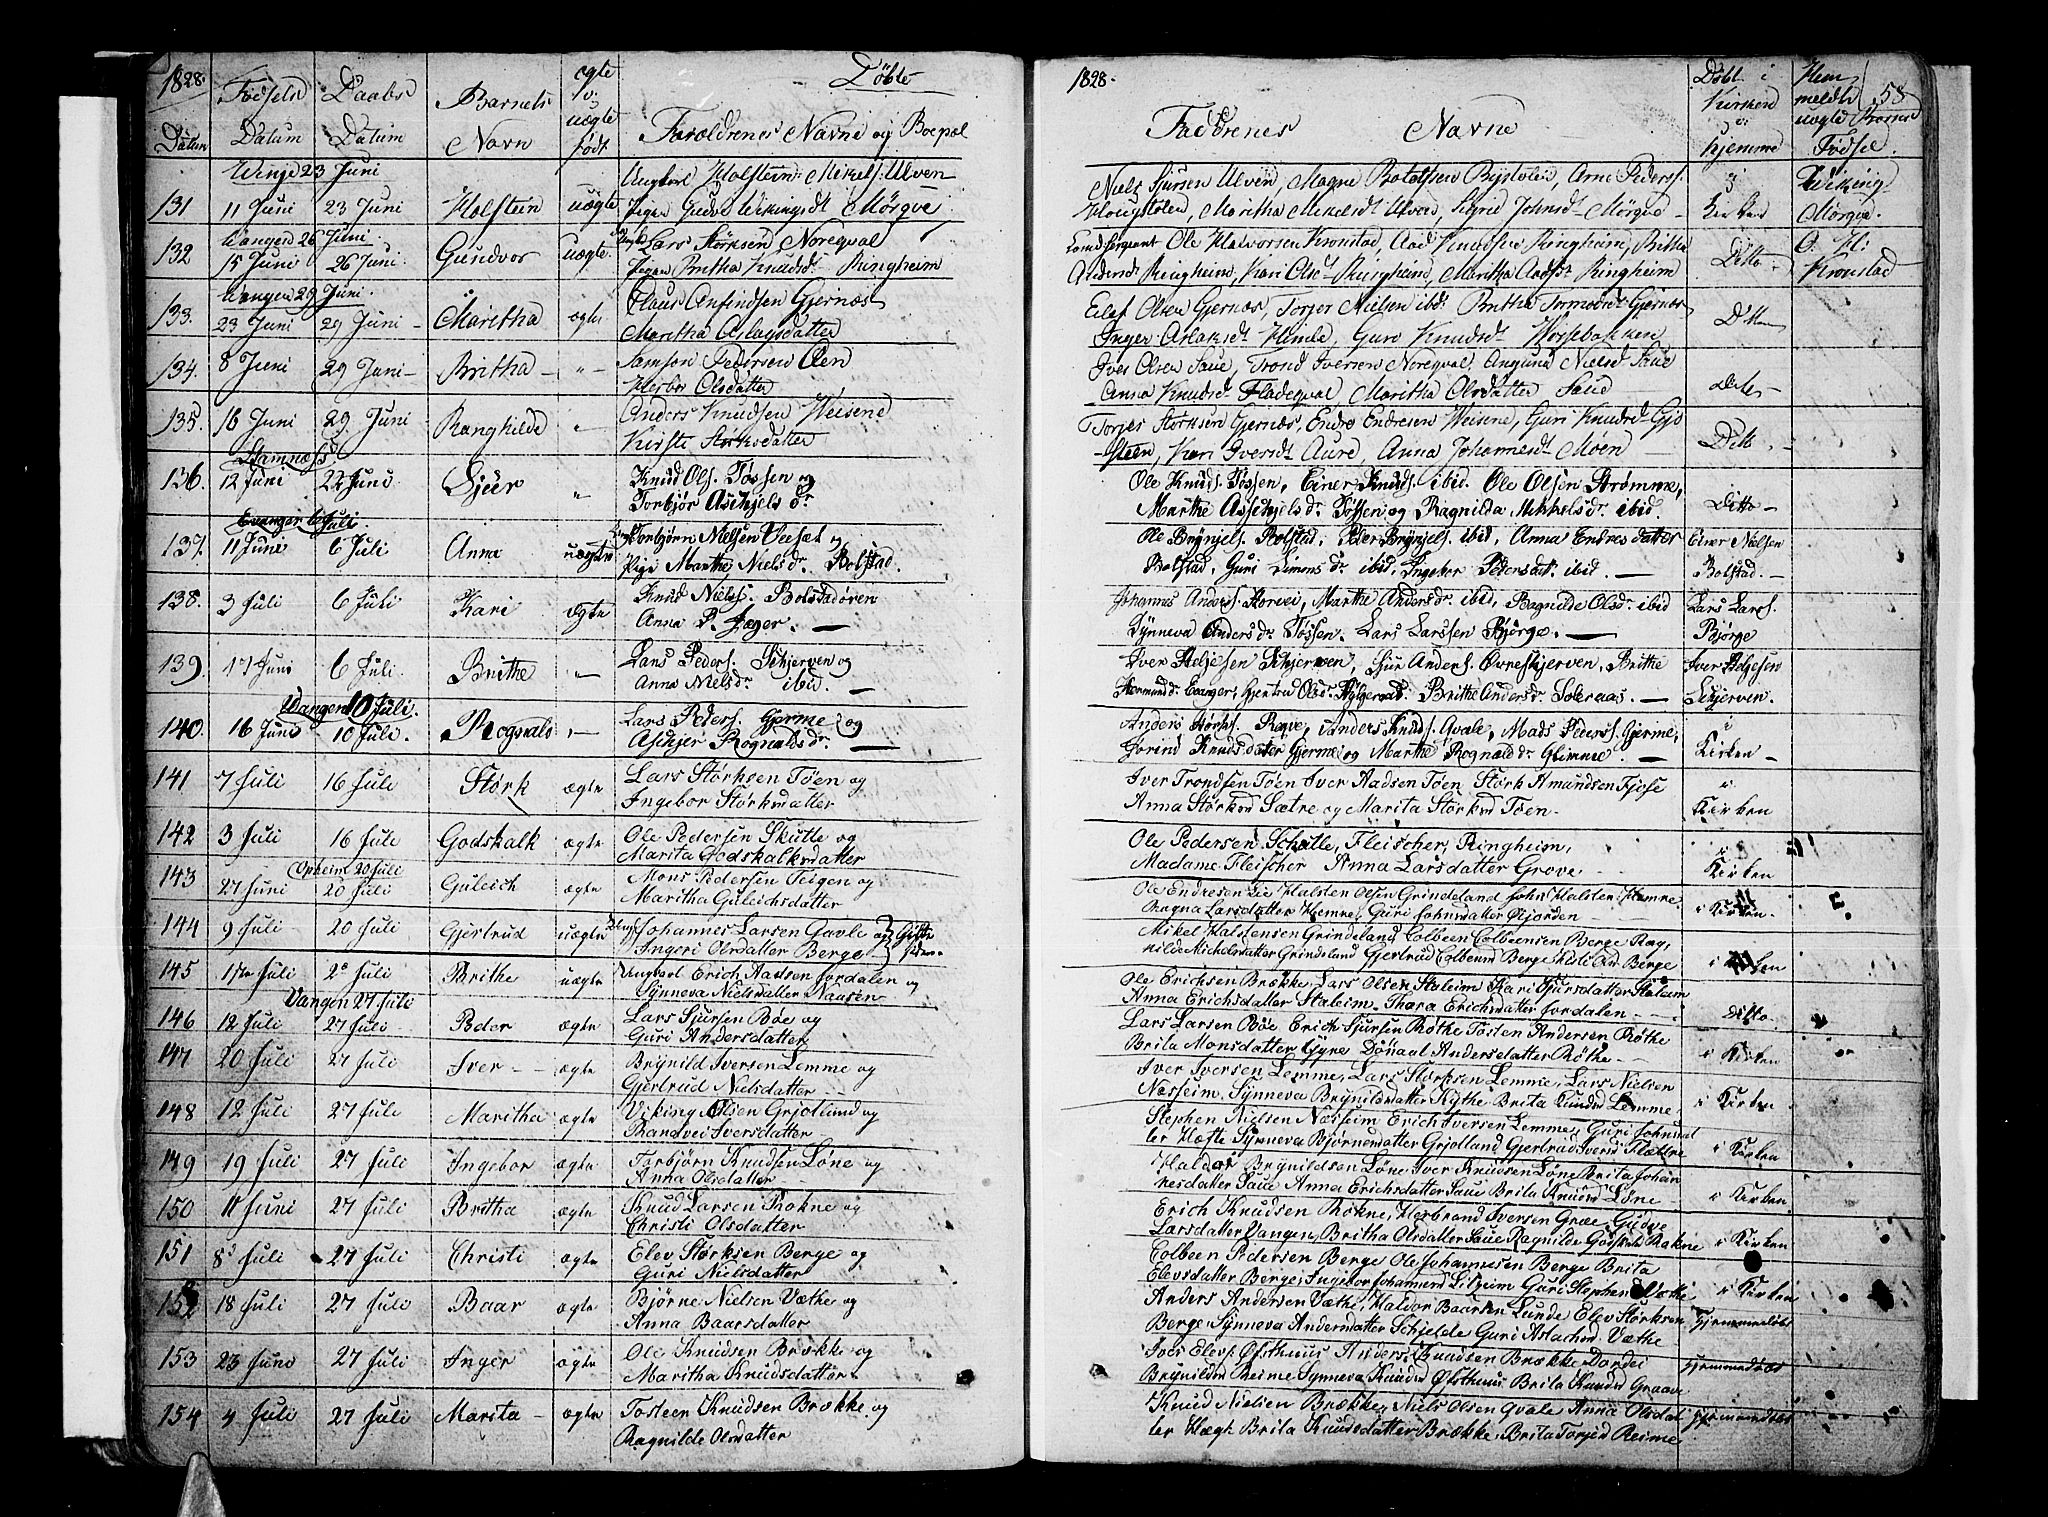 1828. Fødsels Daabs Barnets ægte og uægte født Døbte
Datum Datum Datum Navn Forældrenes Navne og Boepæl
Winje 23 Juni
131 11 Juni 23 Juni Holstein uægte Ungkarl Holstein Mikels. Ulven
Pigen Gudve Wikingsdt Mørqve
Wangen 26 Juni.
132 15 Juni 26 Juni. Gundvor uægte Lars Størksen Noreqval
Pigen Britha Knudsdt Ringheim
Wangen 29 Juni.
133. 23 Juni 29 Juni Maritha ægte Claus Anfindsen Gjernæs
Maritha Aslagsdatter
134. 8 Juni 29 Juni Britha Samson PedersenØlen
Herbor Olsdatter
135. 16 Juni 29 Juni Ranghilde Anders Knudsen Weisene
Kirsti Størksdatter
Stamnæss
136. 12 Juni 22 Juni Sjur Knud Ols. Tøssen og
Torbjør Aschjels dr
Evanger 6 Juli.
137. 11 Juni 6 Juli Anna uægte Torbjørn Nielsen Veesæt og
Pige Marthe Niels dr. Bolstad.
138. 3 Juli 6 Juli Kari ægte Knud Niels. Bolstadøren
Anna P. Jæger.
139 17 Juni 6 Juli. Brithe Lars Peders. Schjerven og
Anna Nielsdr ibid.
Wangen 10 Juli.
140. 16 Juni 10 Juli. Rognald Lars Peders. Gjerme og
Aschjer Rognaldsdr.
141 7 Juli 16 Juli Størk ægte Lars Størksen Tøen og
Ingebor Størksdatter
142 3 Juli 16 Juli Godskalk ægte Ole Pedersen Skutle og
Marita Godskalksdatter
Opheim 20 Juli
143 27 Juni 20 Juli Guleich ægte Mons Pedersen Teigen og
Maritha Guleichsdatter
144 9 Juli 20 Juli Gjertrud uægte Johannes Larsen Gavle og Gifte
Ingeri Olsdatter Berge
145 Juli 20 Juli Brithe uægte Ungkarl Erich Aadsen Jordalen og
Synneva Nielsdatter Naasen
Vangen 27 Juli
146 12 Juli 27 Juli Peder ægte Lars Sjursen Bøe og
Guri Andersdatter
147 20 Juli 27 Juli Iver ægte Brynild Iversen Lemme og
Gjertrud Nielsdatter
148 12 Juli 27 Juli Maritha ægte Viking Olsen Grjotland og
Randvei Iversdatter
149 19 Juli 27 Juli Ingebor ægte Torbjørn Knudsen Løne og
Anna Olsdatter
150 11 Juni 27 Juli Britha ægte Knud Larsen Rokne og
Christi Olsdatter
151 8 Juli 27 Juli Christi ægte Elev Størksen Berge og
Guri Nielsdatter
152 18 Juli 27 Juli Baar ægte Bjørne Nielsen Væthe og
Anna Baarsdatter
153 23 Juni 27 Juli Inger ægte Ole Knudsen Brække og
Maritha Knudsdatter
154 4 Juli 27 Juli Marita ægte Tosteen Knudsen Brække og
Ragnilde Olsdatter
1828. Faddrenes Navne Døbt i Kirken o: hjemme 58
Hen meldte uægte Børns Fødsel.
Niels Sjursen Ulven, Magne Botolfsen Bystølen, Arne Peders.
Hougstølen, Maritha Mikelsdt Ulven, Sigrid Johnsdt Mørqve Wiking Mørqve.
Land Sergeant Ole Halvorsen Kronstad, Aad Knudsen Ringheim, Britha
Andersdt Ringheim, Kari Olsdt Ringheim, Maritha Aadsdt Ringheim Ditto O. H: Kronstad
Eilef Olsen Gjernæs, Torjer Nielsen ibid. Britha Tormoensdt Gjernæs
Inger Aslaksdt Himle, Guro Knudsdt Horsebakken
Iver Olsen Saue, Trond Iversen Noreqval, Angund Nielsd Saue
Anna Knudsdt Fladeqval Maritha Olsdatter Saue
Torjes Størksen Gjernæs, Endre Endresen Weisene, Guri Knudsdt Gjø
steen, Kari Iversdt Aure, Anna Johannesdt Moen Ditto
Ole Knuds. Tøssen, Einer Knuds. ibid. Ole Olsen Strømme,
Marthe Aschjels dr. Tøssen og Ragnilda Mikkelsdr. ibid. Ditto
Ole Brynjels. Bolstad, Peder Brynjels. ibid, Anna Endresdatter Einer Nielsen
Bolstad, Guri Simons dr. ibid, Ingebor Pedersdat. ibid. Bolstad.
Johannes Anders. Horvei, Marthe Andersdr. ibid, Ragnilde Olsdr. ibid Lars Lars.
Synneva Anders dr. Tøssen. Lars Larssen Bjørge. Bjørge
Iver Heljesen Schjerven, Sjur Anders. Øvreschjerven, Brithe Iver Heljesen
Evanger, Gjertrud Olsdr. Brithe Andersdr. Solraas. Schjerven.
Anders Størks. Rave, Anders Knuds. Qvale, Mads Peders. Gjerme, i
Jorend Knudsdatter Gjerme og Marthe Rognaldsdr. Glimme. Kirken
Iver Trondsen Tøen Iver Aadsen Tøen Størk Amundsen Fjose i
Anna Størksd Sætre og Marita Størksd Tøen. Kirken
Ole Pedersen Schutle, Fleischer, Ringheim, i
Madame Fleischer Anna Larsdatter Grove Kirken
Ole Endresen Lie Halsten Olsen Grindeland John Halsten Hemre
Ragna Larsdatter Hemre, Guri Johnsdatter Øfjorden i Kirken.
Mikel Halstensen Grindeland Colbeen Colbeensen Berge Rag
nilde Michelsdatter Grindeland Gjertrud Colbensd Berge Berge i Kirken
Ole Erichsen Brække, Lars Olsen Staleim Kari Sjursdatter Staleim
Anna Erichsdatter Staleim Thora Erichsdatter Jordalen ditto.
Lars Larsen Bøe Erich Sjursen Røthe Tosten Andersen Røthe
Brita Monsdatter Gjyre Andersdatter Røthe i Kirken
Iver Iversen Lemme, Lars Størksen Lemme, Lars Nielsen
Næsheim, Synneva Brynildsdatter Kythe Brita Knudsd Lemme i Kirken
Stephen Nielsen Næsheim Erich Iversen Lemme, Guri Johnsdat
ter Hæfte Synneva Bjørnesdatter Grjotland Gjertrud Iversd Flættre i Kirken
Haldor Brynildsen Løne Iver Knudsen Løne Brita Johan
nesdatter Saue Anna Erichsdatter Saue Brita Knudsd Løne i Kirken
Erich Knudsen Rokne, Herbrand Iversen Græe, Gudve
Larsdatter Vangen, Britha Olsdatter Saue Ragnilde Godskalksd Rokne i Kirken
Colbeen Pedersen Berge Ole Johannesen Berge Brita
Elevsdatter Berge, Ingebor Johannesd Guri Stephensd Væthe i Kirken
Anders Andersen Væthe, Haldor Baarsen Lunde Elev Størksen
Berge Synneva Andersdatter Schjelde Guri Aslachsd Væthe Hjemmedøbt
Iver Elevs. Østhuus Anders Knudsen Brække Dordei
Brynildsd Reime Synneva Knudsd Østhuus Brita Knudsd Graave Hjemmedøbt
Knud Nielsen Brække, Niels Olsen Qvale Anna Olsdat
ter Hægt. Brita Knudsdatter Brække, Brita Torjersd Reime Hjemmedøbt